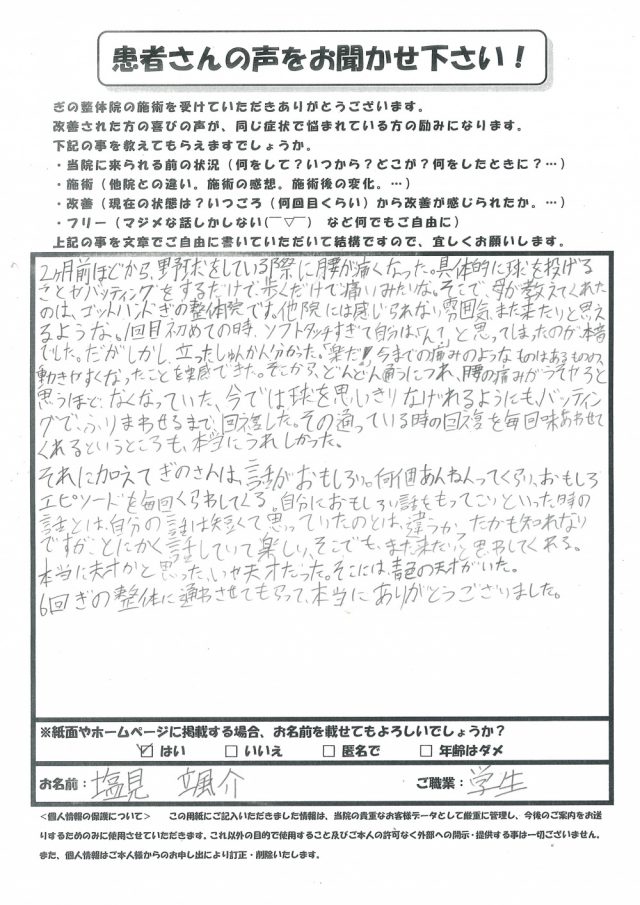 患者さんの声をお聞かせ下さい！
ぎの整体院の施術を受けていただきありがとうございます。
改善された方の喜びの声が、同じ症状で悩まれている方の励みになります。
下記の事を教えてもらえますでしょうか。
・当院に来られる前の状況（何をして？いつから？どこが？何をしたときに？…）
・施術（他院との違い。施術の感想。施術後の変化。…）
・改善（現在の状態は？いつごろ（何回目くらい）から改善が感じられたか。…）
・フリー（マジメな話しかしない(￣▽￣) など何でもご自由に）
上記の事を文章でご自由に書いていただいて結構ですので、宜しくお願いします。
2ヶ月前ほどから、野球をしている際に腰が痛くなった。具体的に球を投げる
ことやバッティングをするだけで、歩くだけで痛いみたいな。そこで、母が教えてくれた
のは、ゴットハンドぎの整体院です。他院には感じられない雰囲気、また来たいと思え
るような。1回目初めての時、ソフトタッチすぎて自分は「んて」と思ってしまったのが本音
でした。だがしかし、立ったしゅんかん!分かった。「楽だ!!」今までの痛みのようなものはあるものの、
動きやすくなったことを実感できた。そこから、どんどん通うにつれ、腰の痛みがうそやろと
思うほど、なくなっていた、今では球を思いきりなげれるようにも、バッティン
グで、ふりまわせるまで、回復した。その通っている時の回復を毎回味あわせて
くれるというところも、本当にうれしかった。
それに加えてぎのさんは、話がおもしろい。何個あんねんってくらい、おもしろ
エピソードを毎回くらわしてくる。自分におもしろい話をもってこいといった時の
話とは、自分の話は短くて思っていたのとは、違うかったかも知れない
ですがとにかく話していて楽しい、そこでも、また来たいと思わしてくれる。
本当に天才かと思った、いや天才だった。そこには、青色の天才がいた。
6回ぎの整体に通わさせてもらって、本当にありがとうございました。
※紙面やホームページに掲載する場合、お名前を載せてもよろしいでしょうか？
☑ はい □ いいえ □ 匿名で □ 年齢はダメ
お名前：塩見 颯介 ご職業：学生
＜個人情報の保護について＞ この用紙にご記入いただきました情報は、当院の貴重なお客様データとして厳重に管理し、今後のご案内をお送
りするためのみに使用させていただきます。これ以外の目的で使用すること及びご本人の許可なく外部への開示・提供する事は一切ございません。
また、個人情報はご本人様からのお申し出により訂正・削除いたします。